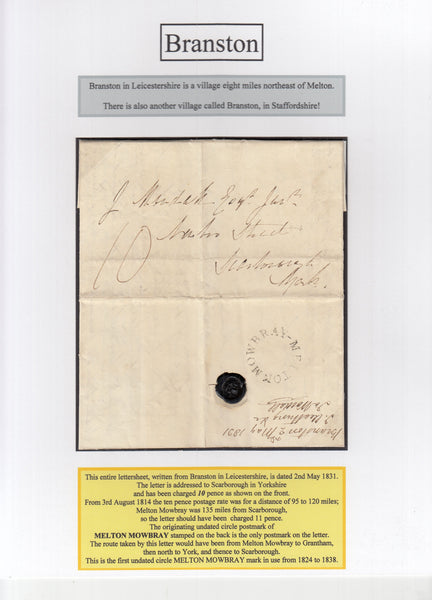 Branston
Branston in Leicestershire is a village eight miles northeast of Melton.
There is also another village called Branston, in Staffordshire!
J Esqr Junr
Street
Scarborough
York.
10
MOWBRAY-MELTON
Branston 2 May 1831
This entire lettersheet, written from Branston in Leicestershire, is dated 2nd May 1831.
The letter is addressed to Scarborough in Yorkshire
and has been charged 10 pence as shown on the front.
From 3rd August 1814 the ten pence postage rate was for a distance of 95 to 120 miles;
Melton Mowbray was 135 miles from Scarborough,
so the letter should have been charged 11 pence.
The originating undated circle postmark of
MELTON MOWBRAY stamped on the back is the only postmark on the letter.
The route taken by this letter would have been from Melton Mowbray to Grantham,
then north to York, and thence to Scarborough.
This is the first undated circle MELTON MOWBRAY mark in use from 1824 to 1838.